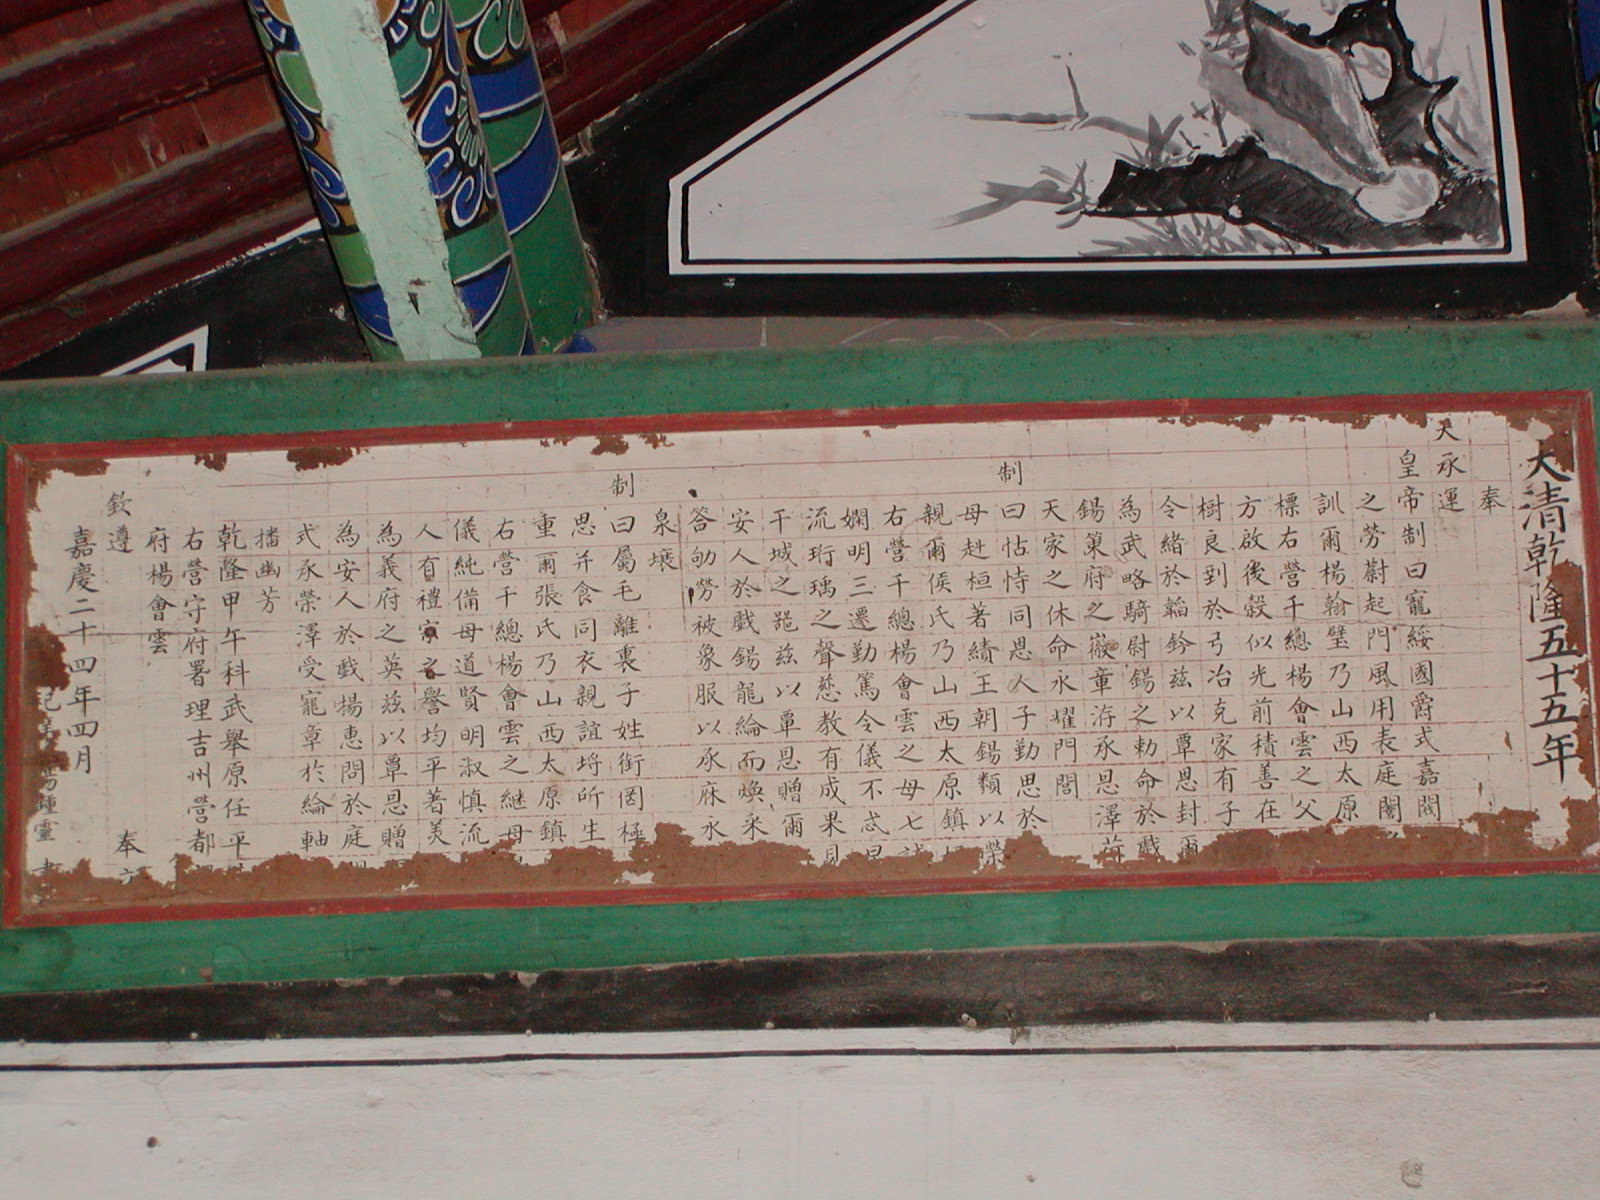 大清乾隆五十五年
奉
天承運
皇帝制曰寵綏國爵式嘉閥
之勞蔚起門風用表庭闈
訓爾楊翰璧乃山西太原
標右營千總楊會雲之父
方啟後穀似光前積善在
樹良到於弓冶克家有子
令緒於韜鈐茲以覃恩封爾
為武略騎尉錫之勅命於戲
錫策府之徽章洊承恩澤荷
天家之休命永耀門閭
制
曰怙恃同恩人子勤思於
母赳桓著績王朝錫類以榮
親爾侯氏乃山西太原鎮
右營千總楊會雲之母七誡
嫻明三遷勤篤令儀不忒早
流珩瑀之聲慈教有成果見
干城之器茲以覃恩贈爾
安人於戲錫龍綸而煥采
答劬勞被象服以承庥永
泉壤
制
曰屬毛離裏子姓銜罔極
思并食同衣親誼埒所生
重爾張氏乃山西太原鎮
右營千總楊會雲之継母
儀純備母道賢明淑慎流
人有禮宗之譽均平著美
為義府之英茲以覃恩贈
為安人於戲揚惠問於庭
式承榮澤受寵章於綸軸
播幽芳
乾隆甲午科武舉原任平
右營守府署理吉州營都
府楊會雲
欽遵
奉
嘉慶二十四年四月